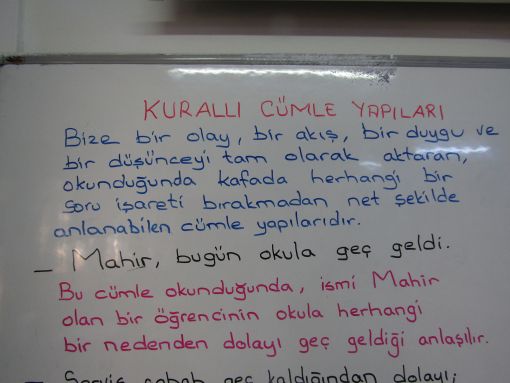 KURALLI CÜMLE YAPILARI
Bize bir olay, bir akış, bir duygu ve
bir düşünceyi tam olarak aktaran,
okunduğunda kafada herhangi bir
soru işareti bırakmadan net şekilde
anlanabilen cümle yapılarıdır.
– Mahir, bugün okula geç geldi.
Bu cümle okunduğunda, ismi Mahir
olan bir öğrencinin okula herhangi
bir nedenden dolayı geç geldiği anlaşılır.
Servis sabah geç kaldığından dolayı;